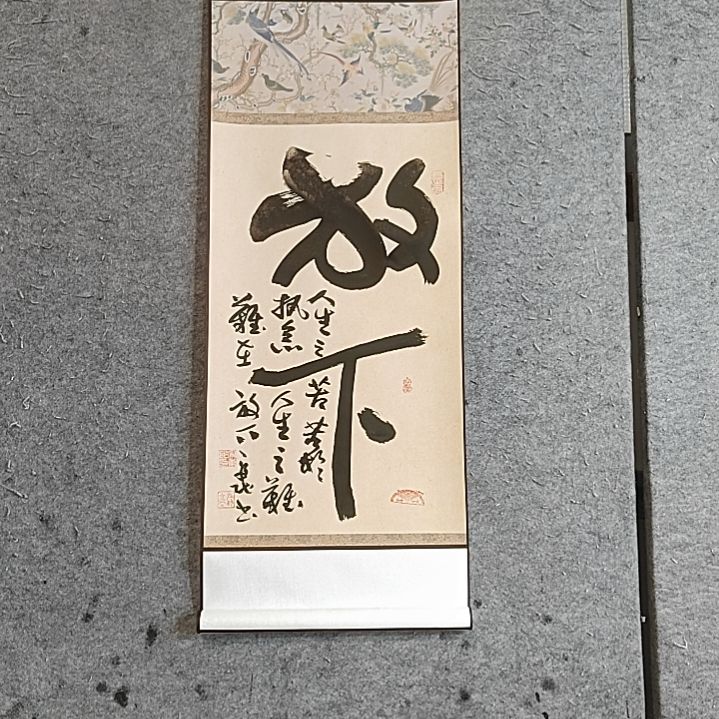 放下
人生之苦苦於
执念人生之難
難在放下